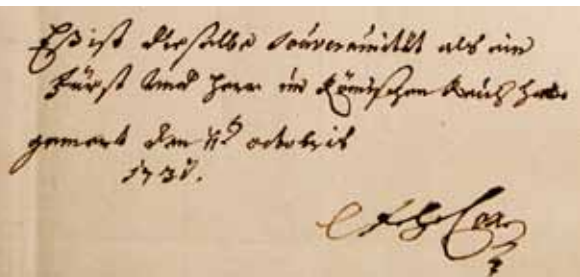 Eß ist dieselbe Souverainität als ein
Fürst und Herr im Römischen Reich
den 11 octobris
173